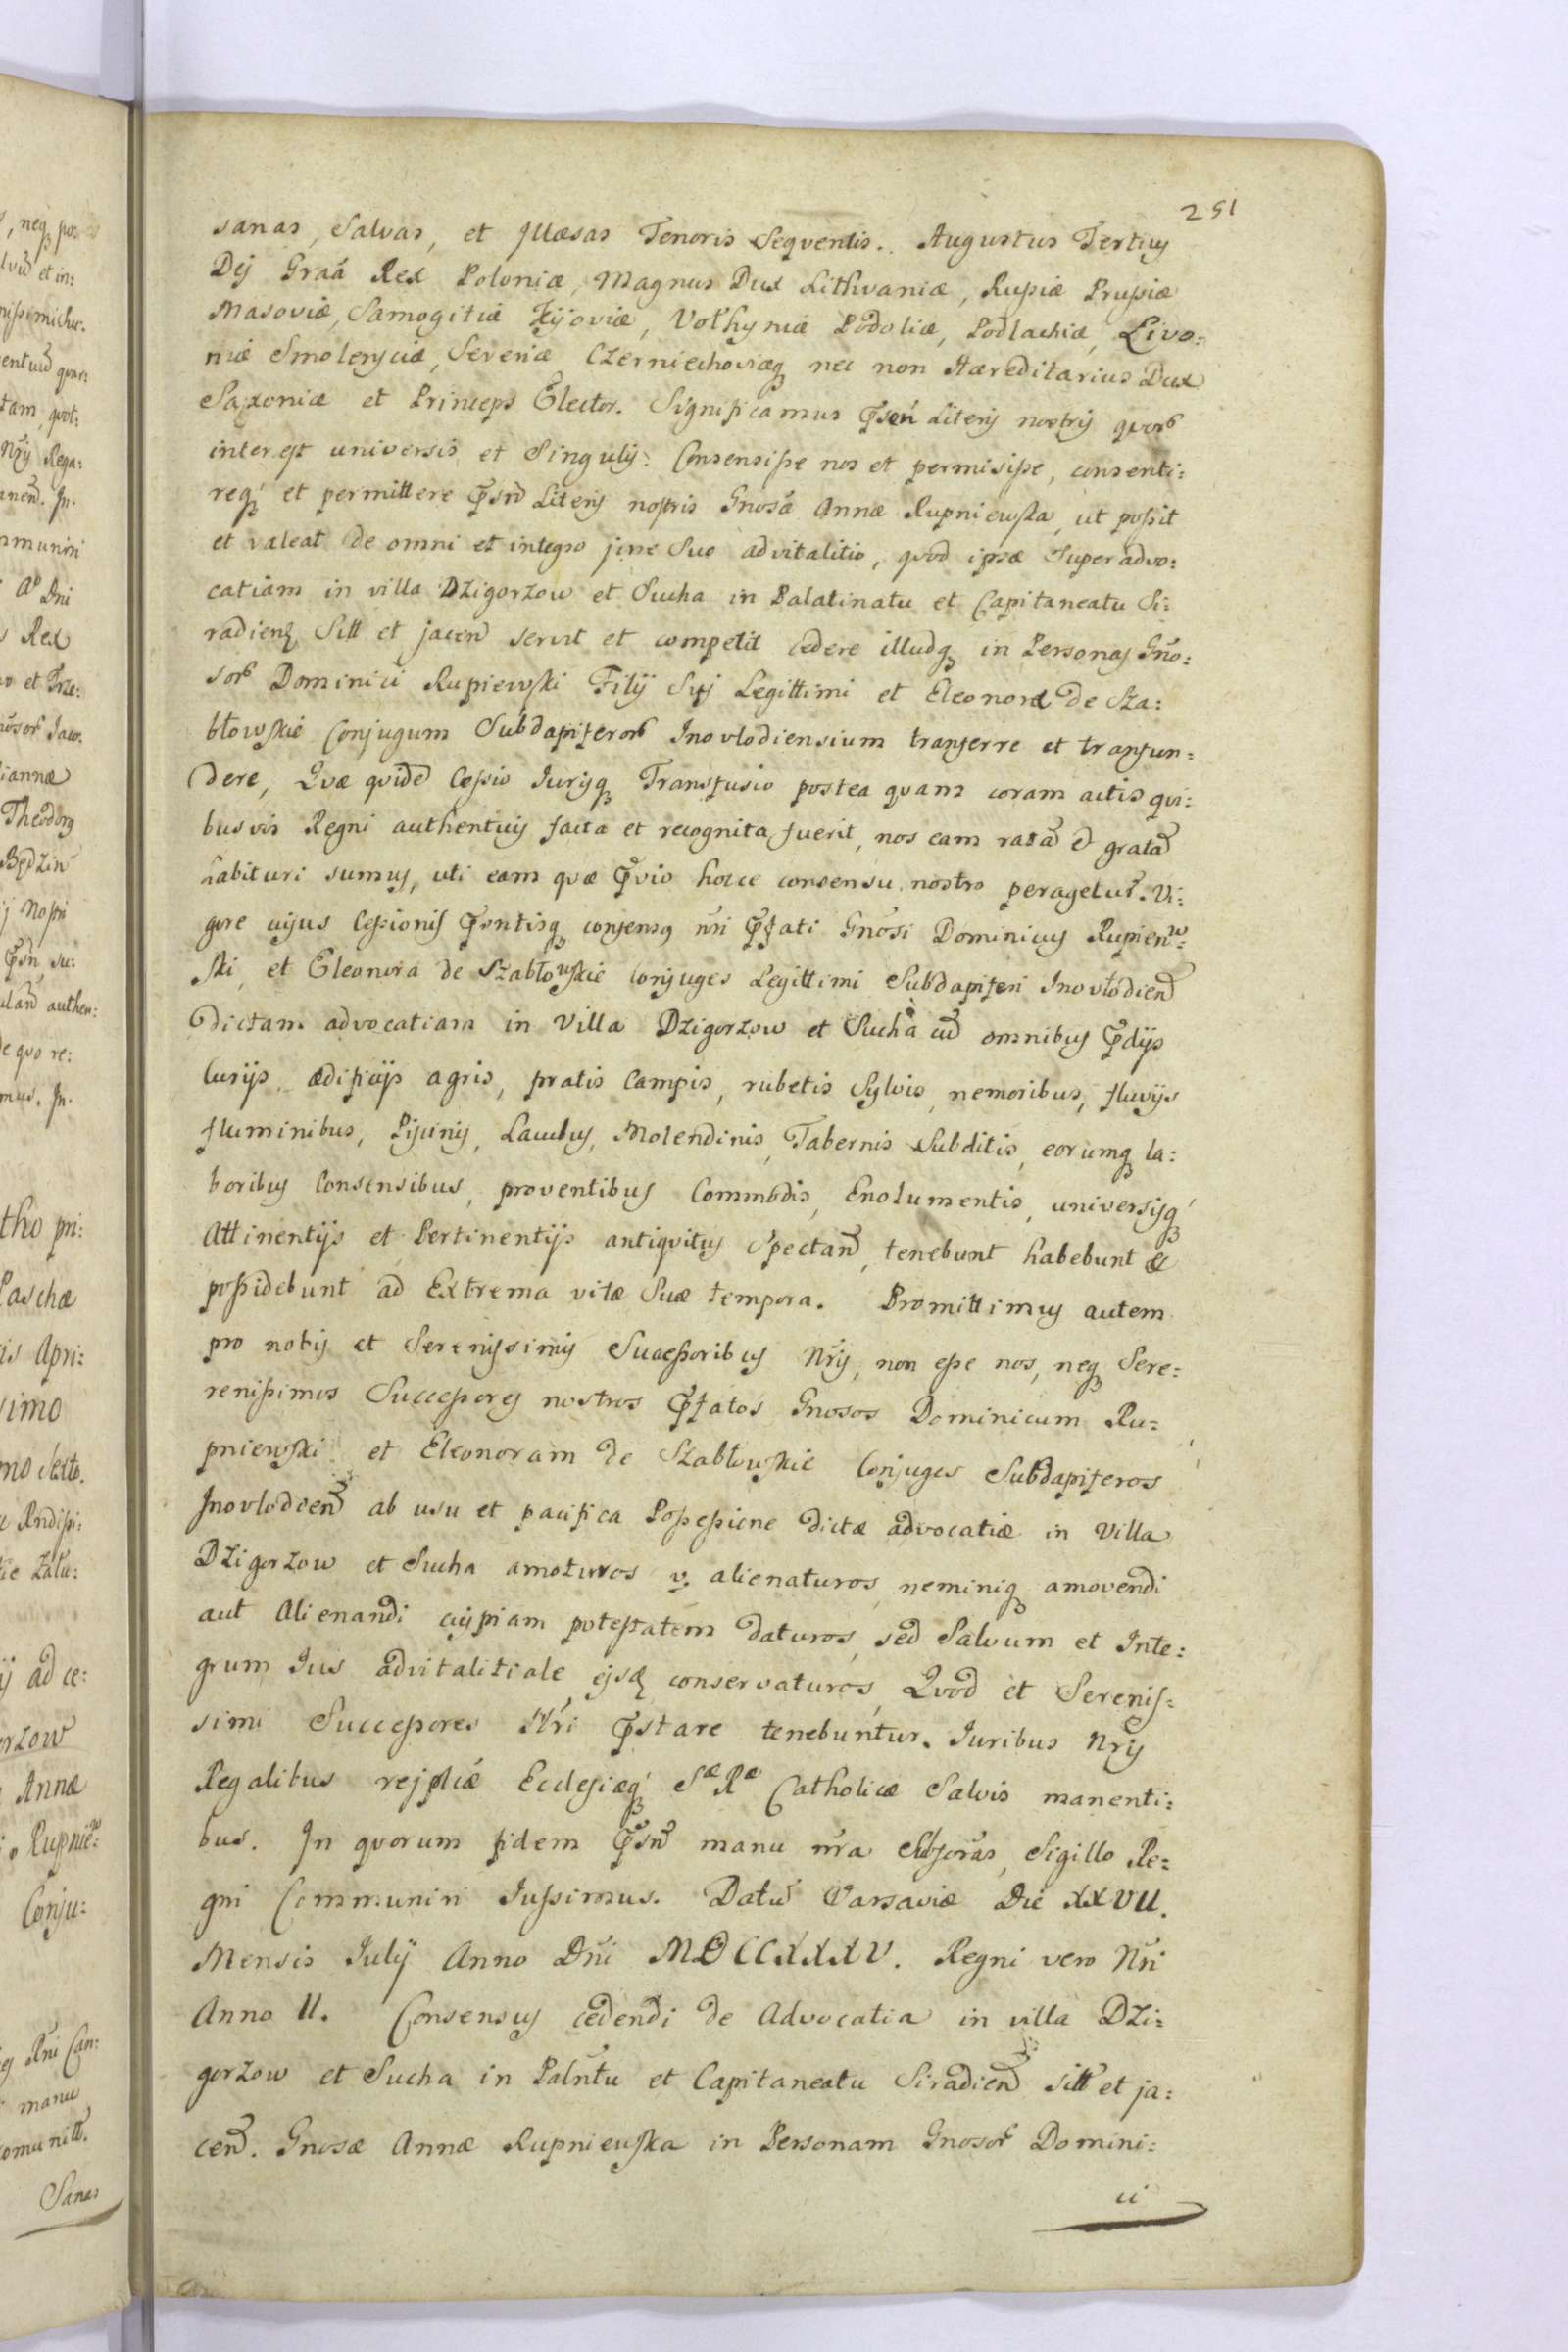 251
sanas, Salvas, et Illæsas Tenoris Seqventis. Augustus Tertiꝰ
Dej Graã Rex Poloniæ, Magnus Dux Lithvaniæ, Rußiæ Prußiæ
Masoviæ, Samogitiæ Kijoviæ, Volhyniæ Podoliæ, Podlachiæ, Livo:
niæ Smolensciæ, Severiæ Czerniechoviæq nec non Hæreditarius Dux
Saxoniæ et Princeps Elector. Significamus Pñsen Literis nostris quorũ
interest universis et Singulis: Consensiße nos et permisiße, consenti:
req et permittere Pñsñ Literis nostris Gnosæ Annæ Rupniewska, ut poßit
et valeat de omni et integro jure Suo advitalitio, qvod ipsæ Super advo:
catiam in villa Dzigorzow et Sucha in Palatinatu et Capitaneatu Si:
radieñ Sitt et jaceñ servit et competit cedere illudq in Personas Gño:
sorũ Dominici Rupiewski Filÿ Suj Legittimi et Eleonoræ de Sza:
błowskie Conjugum Subdapiferorũ Inovlodiensium transferre et transfun:
dere, Qvæ qvidẽ Ceßio Jurisq Transfusio postea quam coram actis qvi:
busvis Regni authenticis facta et recognita fuerit, nos eam ratã et gratã
habituri sumus, uti eam quæ Pṽio hocce consensu nostro peragetur. Vi:
gore cujus Ceßionis Pñsntisq consensus nr̃i Pfati Gnõsi Dominicus Rupiew:
ski, et Eleonora de Szabłowskie conjuges Legittimi Subdapiferi Inovłodieñ
dictam advocatiam in Villa Dzigorzow et Sucha cũ omnibus Pdÿs
Curÿs ædificÿs agris, pratis Campis, rubetis Sylvis, nemoribus, fluvÿs
fluminibus, Piscinis, Lacubus, Molendinis, Tabernis Subditis, eorumq la:
boribus Consensibus, proventibus Commodis, Emolumentis, universisq
Attinentÿs et Pertinentÿs antiqvitus Spectañ, tenebunt habebunt et
poßidebunt ad Extrema vitæ Suæ tempora. Promittimus autem
pro nobis et Serenissimis Succeßoribus Nr̃is, non eße nos, neq Sere:
renißimos Succeßores nostros Pfatos Gnosos Dominicum Ru:
pniewski et Eleonoram de Szabłowskie Conjuges Subdapiferos
Inovlodieñ ab usu et pacifica Poßeßione dictæ advocatiæ in Villa
Dzigorzow et Sucha amoturos v. alienaturos, neminiq amovendi
aut Alienandi cuipiam potestatem daturos, sed Salvum et Inte:
grum Jus advitalitiale ejsd conservaturos, Qvod et Serenis:
simi Succeßores Nr̃i Pstare tenebuntur. Juribus Nr̃is
Regalibus rejplicæ Ecclesiæq Sæ Ræ Catholicæ Salvis manenti:
bus. In qvorum fidem Pñsñ manu nr̃a Subscras, Sigillo Re:
gni Communiri Jußimus. Datũ Varsaviæ Die XXVII.
Mensis Julÿ Anno Dñi MDCCXXXV. Regni vero Nr̃i
Anno II. Consensus cedendi de Advocatia in villa Dzi:
gorzow et Sucha in Palñtu et Capitaneatu Siradieñ sitt et ja:
ceñ. Gnosæ Annæ Rupniewska in Personam Gnosorũ Domini:
ci